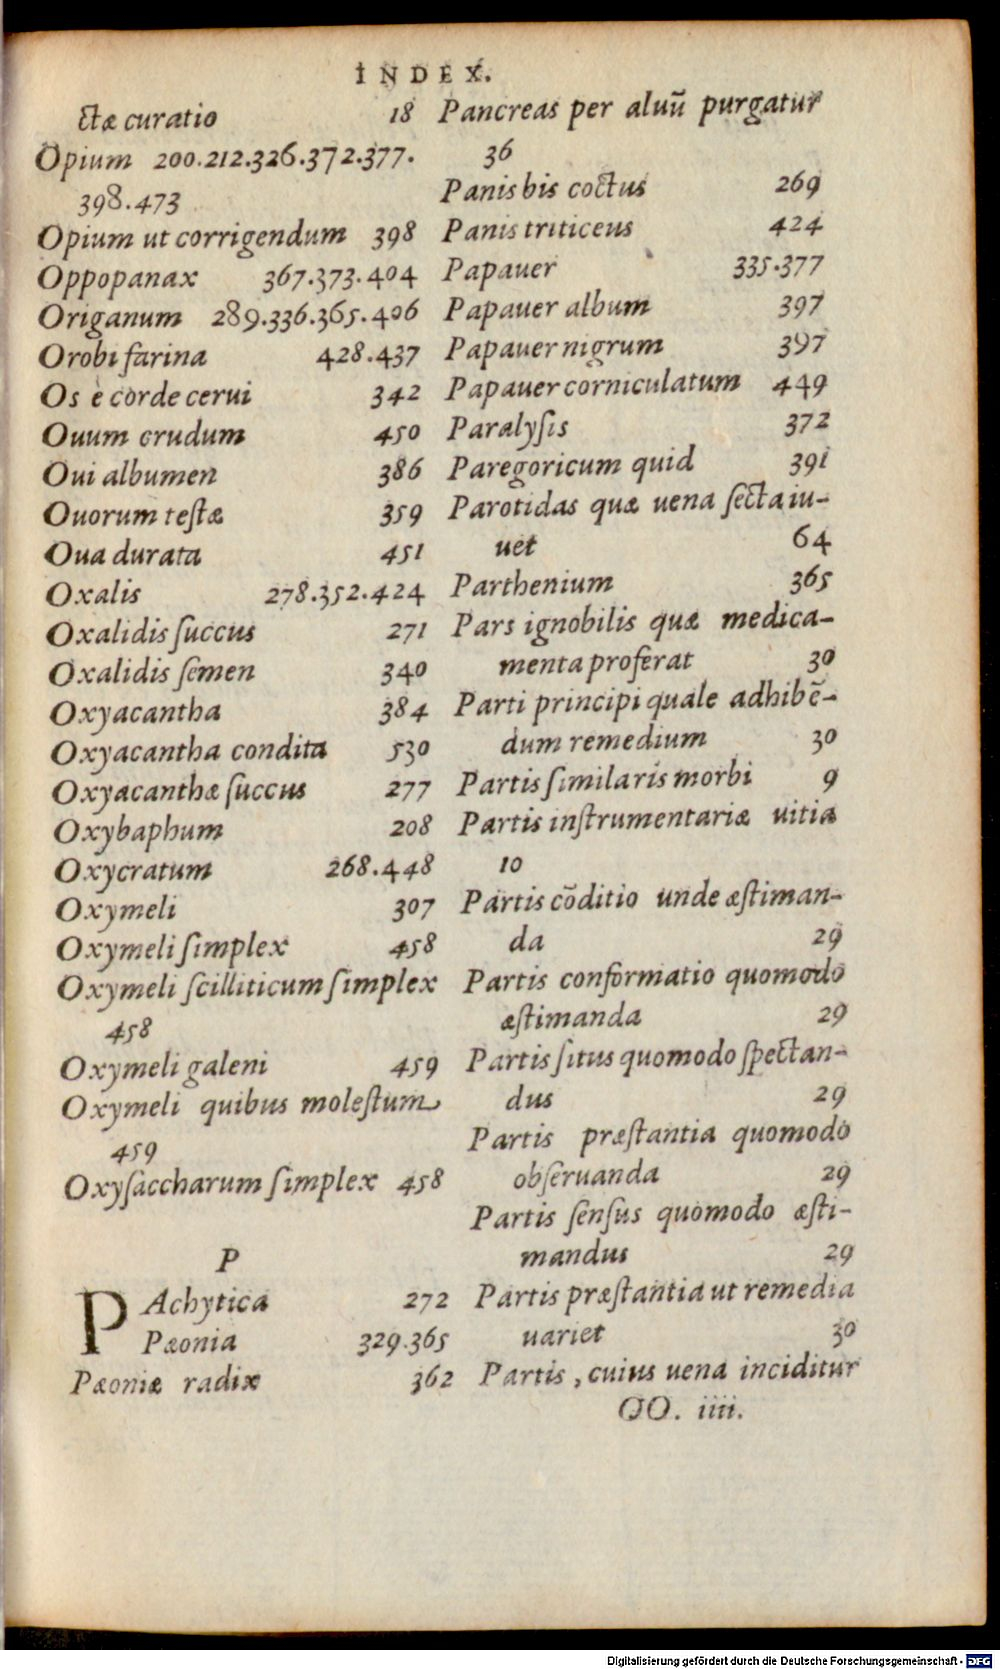 INDEX.
ctæ curatio 18
Opium 200.212.326.372.377.
398.473
Opium ut corrigendum 398
Oppopanax 367.373.404
Origanum 289.336.365.406
Orobi farina 428.437
Os è corde cerui 342
Ouum crudum 450
Oui albumen 386
Ouorum testæ 359
Oua durata 451
Oxalis 278.352.424
Oxalidis ſuccus 271
Oxalidis ſemen 340
Oxyacantha 384
Oxyacantha condita 530
Oxyacanthæ ſuccus 277
Oxybaphum 208
Oxycratum 268.448
Oxymeli 307
Oxymeli ſimplex 458
Oxymeli ſcilliticum ſimplex
458
Oxymeli galeni 459
Oxymeli quibus moleſtum
459
Oxyſaccharum ſimplex 458
P
PAchytica 272
Pæonia 329.365
Pæoniæ radix 362
Pancreas per aluū purgatur
36
Panis bis coctus 269
Panis triticeus 424
Papauer 335.377
Papauer album 397
Papauer nigrum 397
Papauer corniculatum 449
Paralyſis 372
Paregoricum quid 391
Parotidas quæ uena ſecta iu-
uet 64
Parthenium 365
Pars ignobilis quæ medica-
menta proferat 30
Parti principi quale adhibē-
dum remedium 30
Partis ſimilaris morbi 9
Partis inſtrumentariæ uitia
10
Partis cōditio unde æſtiman-
da 29
Partis conformatio quomodo
æſtimanda 29
Partis ſitus quomodo ſpectan-
dus 29
Partis præſtantia quomodo
obſeruanda 29
Partis ſenſus quomodo æſti-
mandus 29
Partis præſtantia ut remedia
uariet 30
Partis, cuius uena inciditur
OO. iiii.
Digitalisierung gefördert durch die Deutsche Forschungsgemeinschaft - DFG